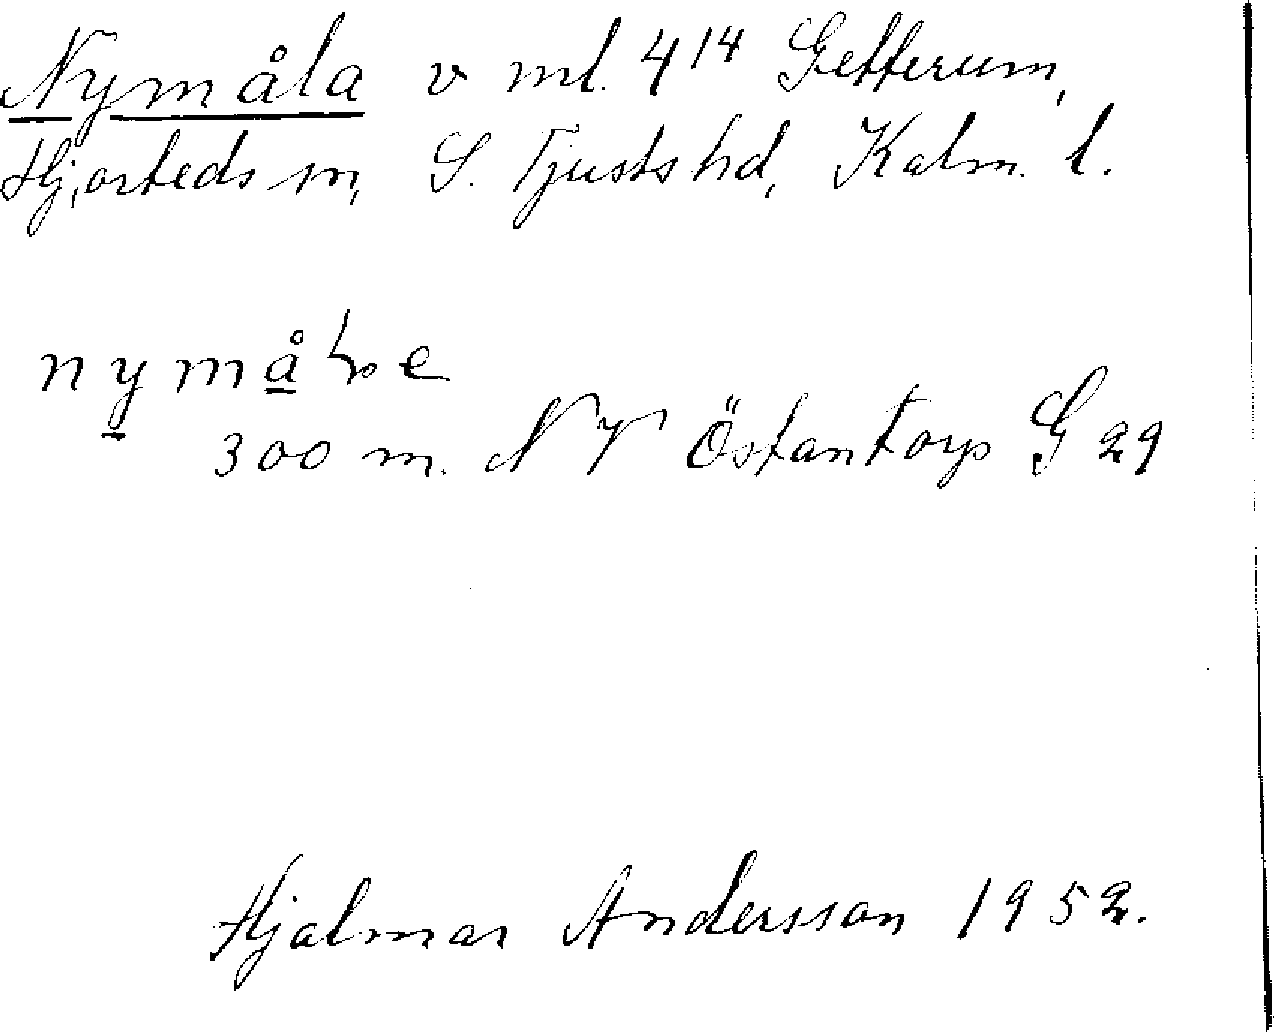 Nymåla v ml. 4¹⁴ Getterum,
Hjorteds sn, S. Tjusts hd, Kalm. l.
nymåɬe
300 m. NV Östantorp G 29
Hjalmar Andersson 1952.